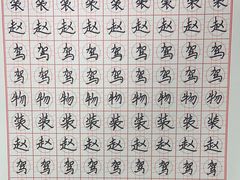 装装装装装装装装装
赵赵赵赵赵赵赵赵赵
驾驾驾驾驾驾驾驾驾
驾驾驾驾驾驾驾驾驾
物物物物物物物物物
装装装装装装装装装
赵赵赵赵赵赵赵赵赵
驾驾驾驾驾驾驾驾驾